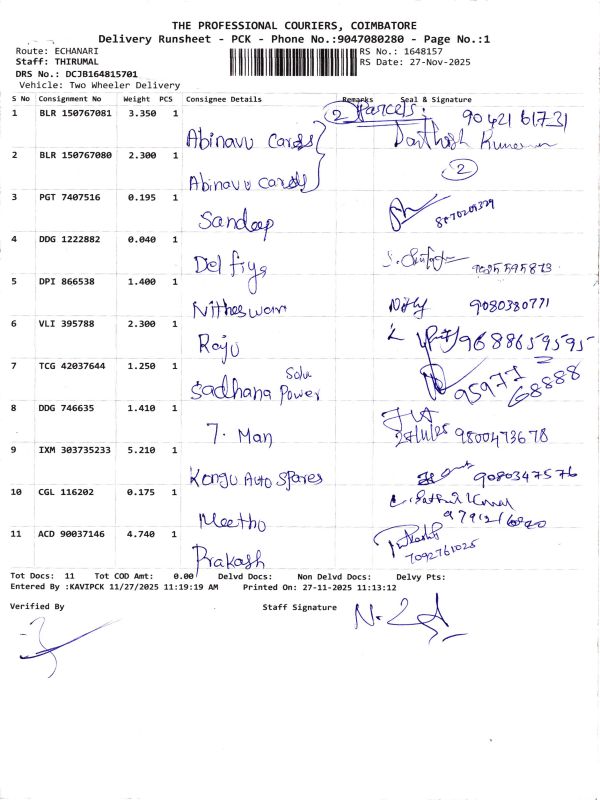 THE PROFESSIONAL COURIERS, COIMBATORE
Delivery Runsheet - PCK - Phone No.:9047080280 - Page No.:1
Route: ECHANARI RS No.: 1648157
Staff: THIRUMAL RS Date: 27-Nov-2025
DRS No.: DCJB164815701
Vehicle: Two Wheeler Delivery
S No Consignment No Weight PCS Consignee Details Remarks Seal & Signature
2 Parcels.
1 BLR 150767081 3.350 1 Abinavu Cards 90421 61731
2 BLR 150767080 2.300 1 Abinavu cards 2
3 PGT 7407516 0.195 1 Sandeep
4 DDG 1222882 0.040 1 Delfiya
5 DPI 866538 1.400 1 Nitheswari 9080380771
6 VLI 395788 2.300 1 Raju 9688659595
7 TCG 42037644 1.250 1 Sadhana Solu Power 95977 68888
8 DDG 746635 1.410 1 7. Man 9800473678
9 IXM 303735233 5.210 1 Kongu Auto Spares 9080347576
10 CGL 116202 0.175 1 Meetho
11 ACD 90037146 4.740 1 Prakash 7092761025
Tot Docs: 11 Tot COD Amt: 0.00 Delvd Docs: Non Delvd Docs: Delvy Pts:
Entered By :KAVIPCK 11/27/2025 11:19:19 AM Printed On: 27-11-2025 11:13:12
Verified By Staff Signature